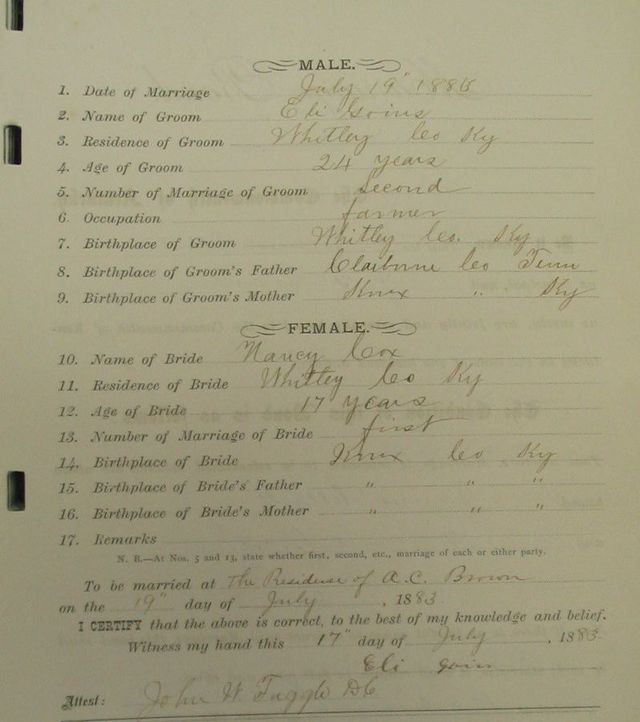 MALE.
1. Date of Marriage July 19" 1883
2. Name of Groom Eli Goins
3. Residence of Groom Whitley Co Ky
4. Age of Groom 24 years
5. Number of Marriage of Groom Second
6. Occupation farmer
7. Birthplace of Groom Whitley Co. Ky
8. Birthplace of Groom's Father Claiborne Co Tenn
9. Birthplace of Groom's Mother Knox " Ky
FEMALE.
10. Name of Bride Nancy Cox
11. Residence of Bride Whitley Co Ky
12. Age of Bride 17 years
13. Number of Marriage of Bride first
14. Birthplace of Bride Knox Co Ky
15. Birthplace of Bride's Father " " "
16. Birthplace of Bride's Mother " " "
17. Remarks
N. B.—At Nos. 5 and 13, state whether first, second, etc., marriage of each or either party.
To be married at The Residense of A.C. Brown
on the 19" day of July, 1883
I CERTIFY that the above is correct, to the best of my knowledge and belief.
Witness my hand this 17" day of July, 1883.
Eli Goin
Attest: John W. Tuggle DC